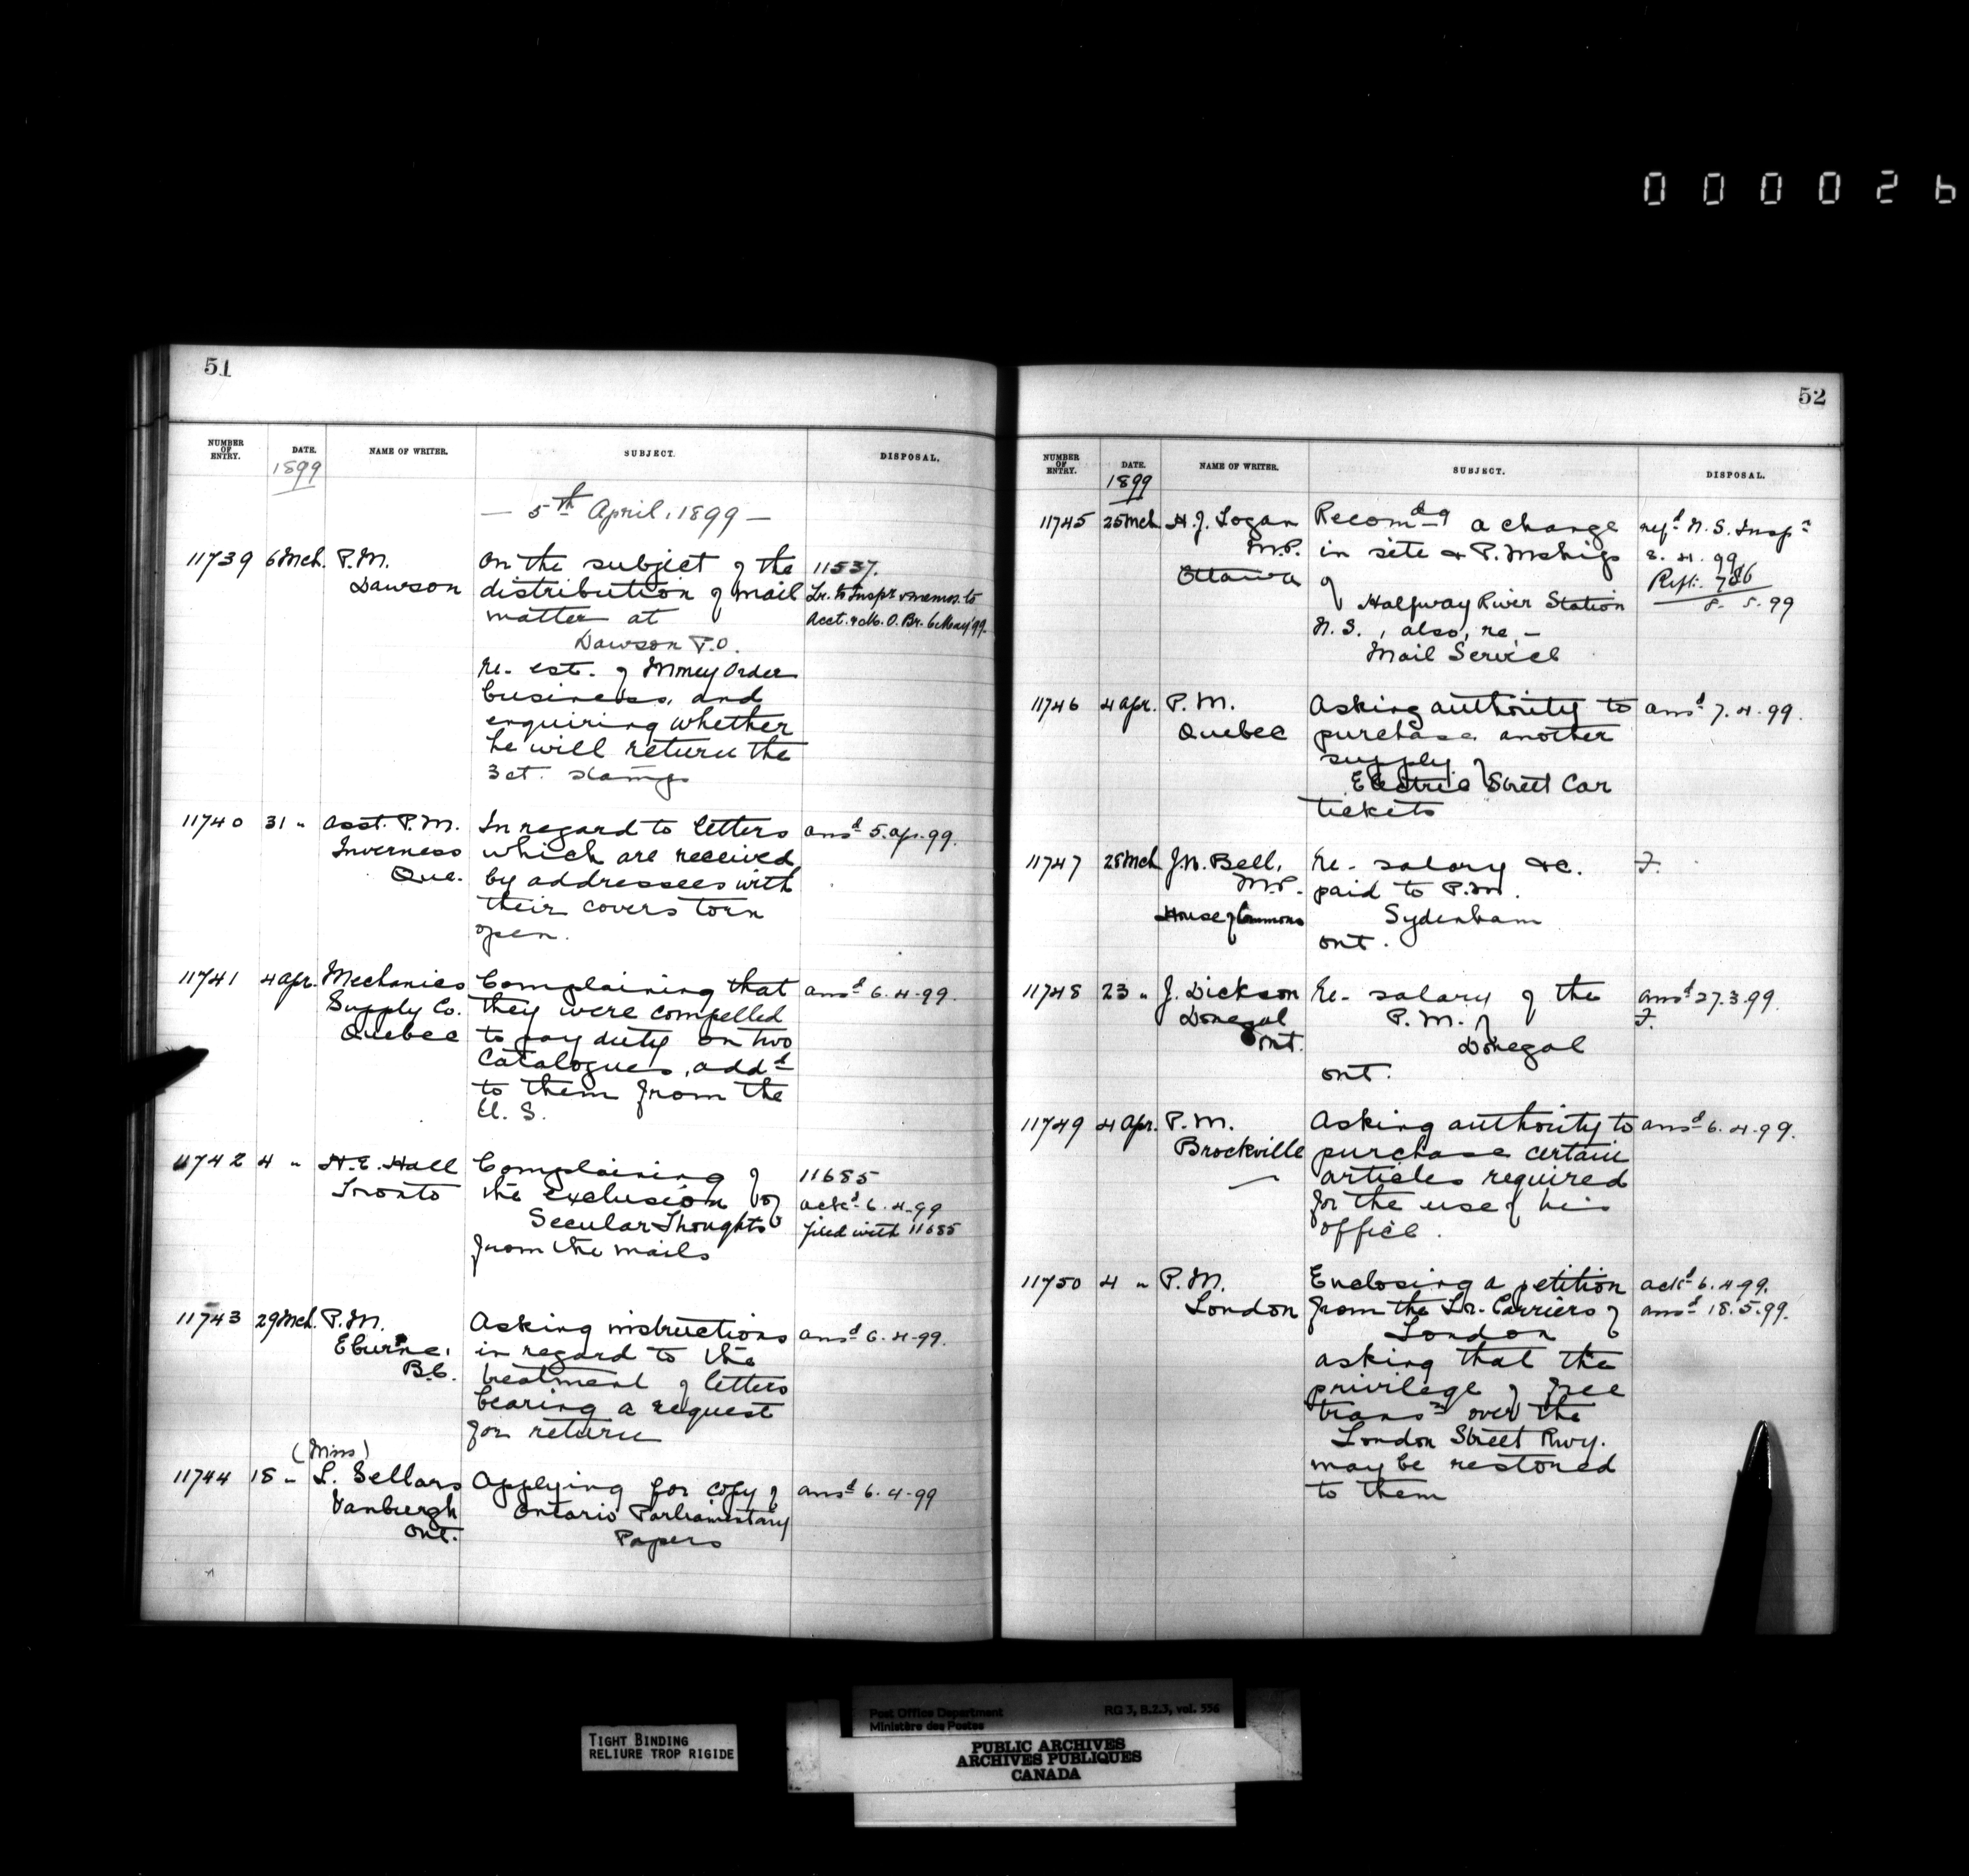 000026
51
NUMBER OF ENTRY. DATE. NAME OF WRITER. SUBJECT. DISPOSAL.
1899
— 5th April, 1899 —
11739 6 Mch. P.M. On the subject of the 11537.
Dawson distribution of mail Lr. to Inspr & memos. to
matter at Acct. & M. O. Br. 6 May '99.
Dawson P.O.
re- est. of Money Order
business, and
enquiring whether
he will return the
3 ct. stamps
11740 31 " Asst. P.M. In regard to letters ansd 5. Ap. 99.
Inverness which are received
Que. by addressees with
their covers torn
open.
11741 4 Apr. Mechanics Complaining that ansd 6. 4. 99.
Supply Co. they were compelled
Quebec to pay duty on two
Catalogues, addd
to them from the
U. S.
11742 4 " H. E. Hall Complaining of 11685
Toronto the exclusion of ackd 6. 4. 99
Secular Thoughts filed with 11685
from the mails
11743 29 Mch. P.M. Asking instructions ansd 6. 4. 99.
Eburne, in regard to the
B.C. treatment of letters
bearing a request
for return
(Miss)
11744 18 " L. Sellars Applying for copy of ansd 6. 4. 99
Vanburgh Ontario Parliamentary
Ont. Papers
52
NUMBER OF ENTRY. DATE. NAME OF WRITER. SUBJECT. DISPOSAL.
1899
11745 25 Mch H. J. Logan Recomdg a change refd N. S. Inspr
M.P. in site & P. Mships 8. 4. 99
Ottawa of
Halfway River Station 8. 5. 99
N. S., also, re, -
Mail Service
11746 4 Apr. P. M. Asking authority to ansd 7. 4. 99.
Quebec purchase another
supply of
Electric Street Car
tickets
11747 28 Mch J. W. Bell, Re- salary &c. F.
M.P. paid to P.M.
House of Commons Sydenham
Ont.
11748 23 " J. Dickson Re- salary of the ansd 27. 3. 99.
Donegal P. M. of F.
Ont. Donegal
Ont.
11749 4 Apr. P. M. Asking authority to ansd 6. 4. 99.
Brockville purchase certain
articles required
for the use of his
office.
11750 4 " P. M. Enclosing a petition ackd 6. 4. 99.
London from the Lr. Carriers of ansd 18. 5. 99.
London
asking that the
privilege of free
transn over the
London Street Rwy.
may be restored
to them
TIGHT BINDING
RELIURE TROP RIGIDE
Post Office Department RG 3, B.2.3, vol. 556
Ministère des Postes
PUBLIC ARCHIVES
ARCHIVES PUBLIQUES
CANADA